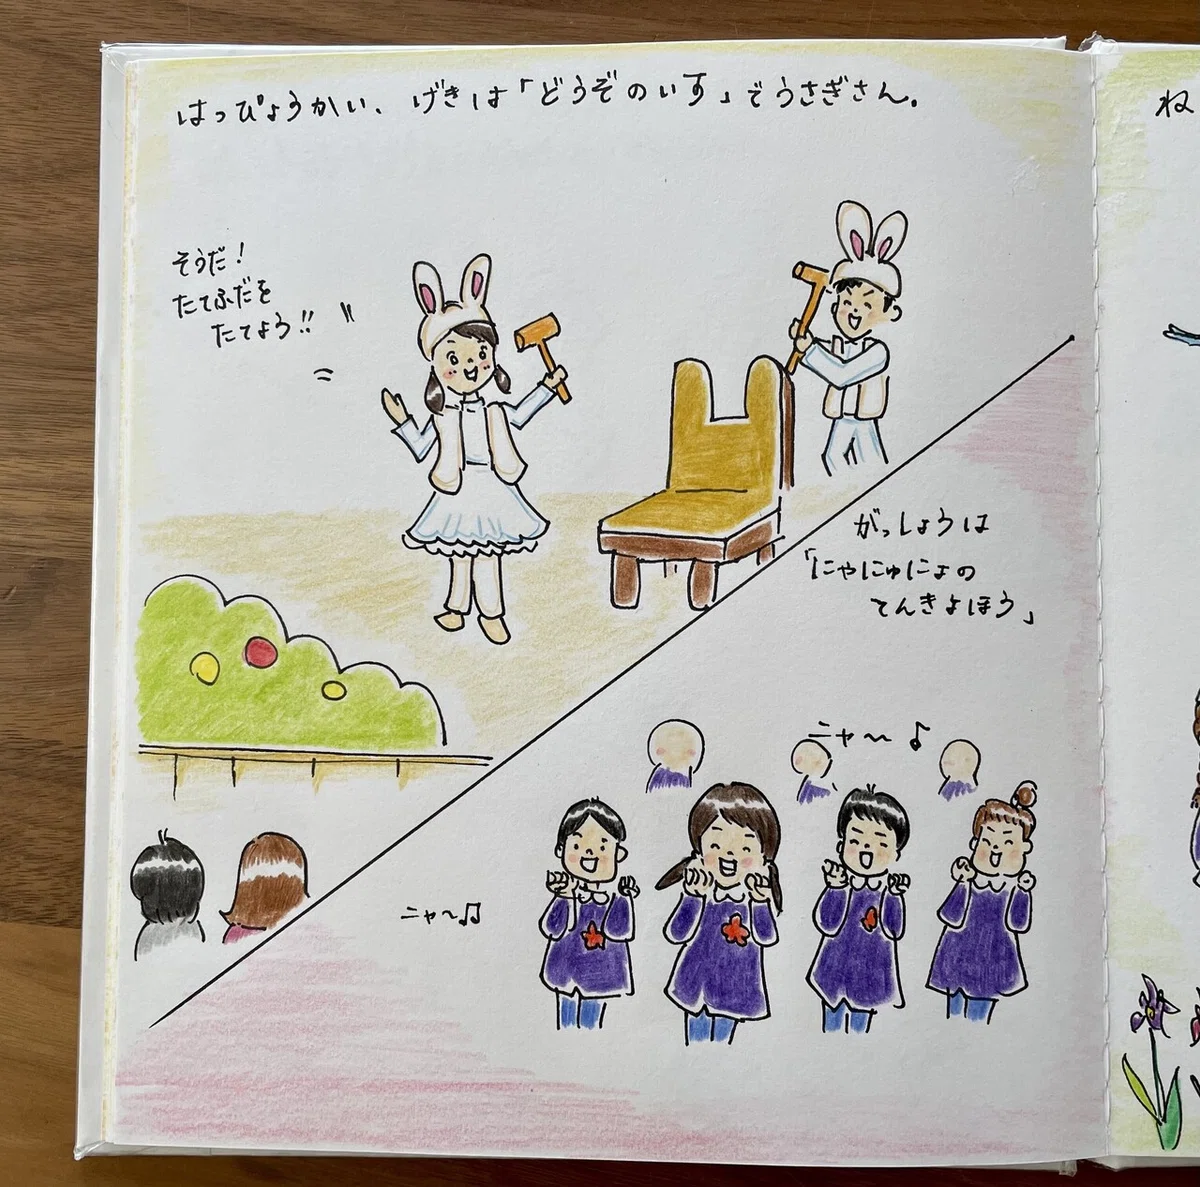 はっぴょうかい、げきは「どうぞのいす」でうさぎさん。
そうだ!
たてふだを
たてよう!!
がっしょうは
「にゃにゅにょの
てんきよほう」
ニャ〜♪
ニャ〜♫
ね